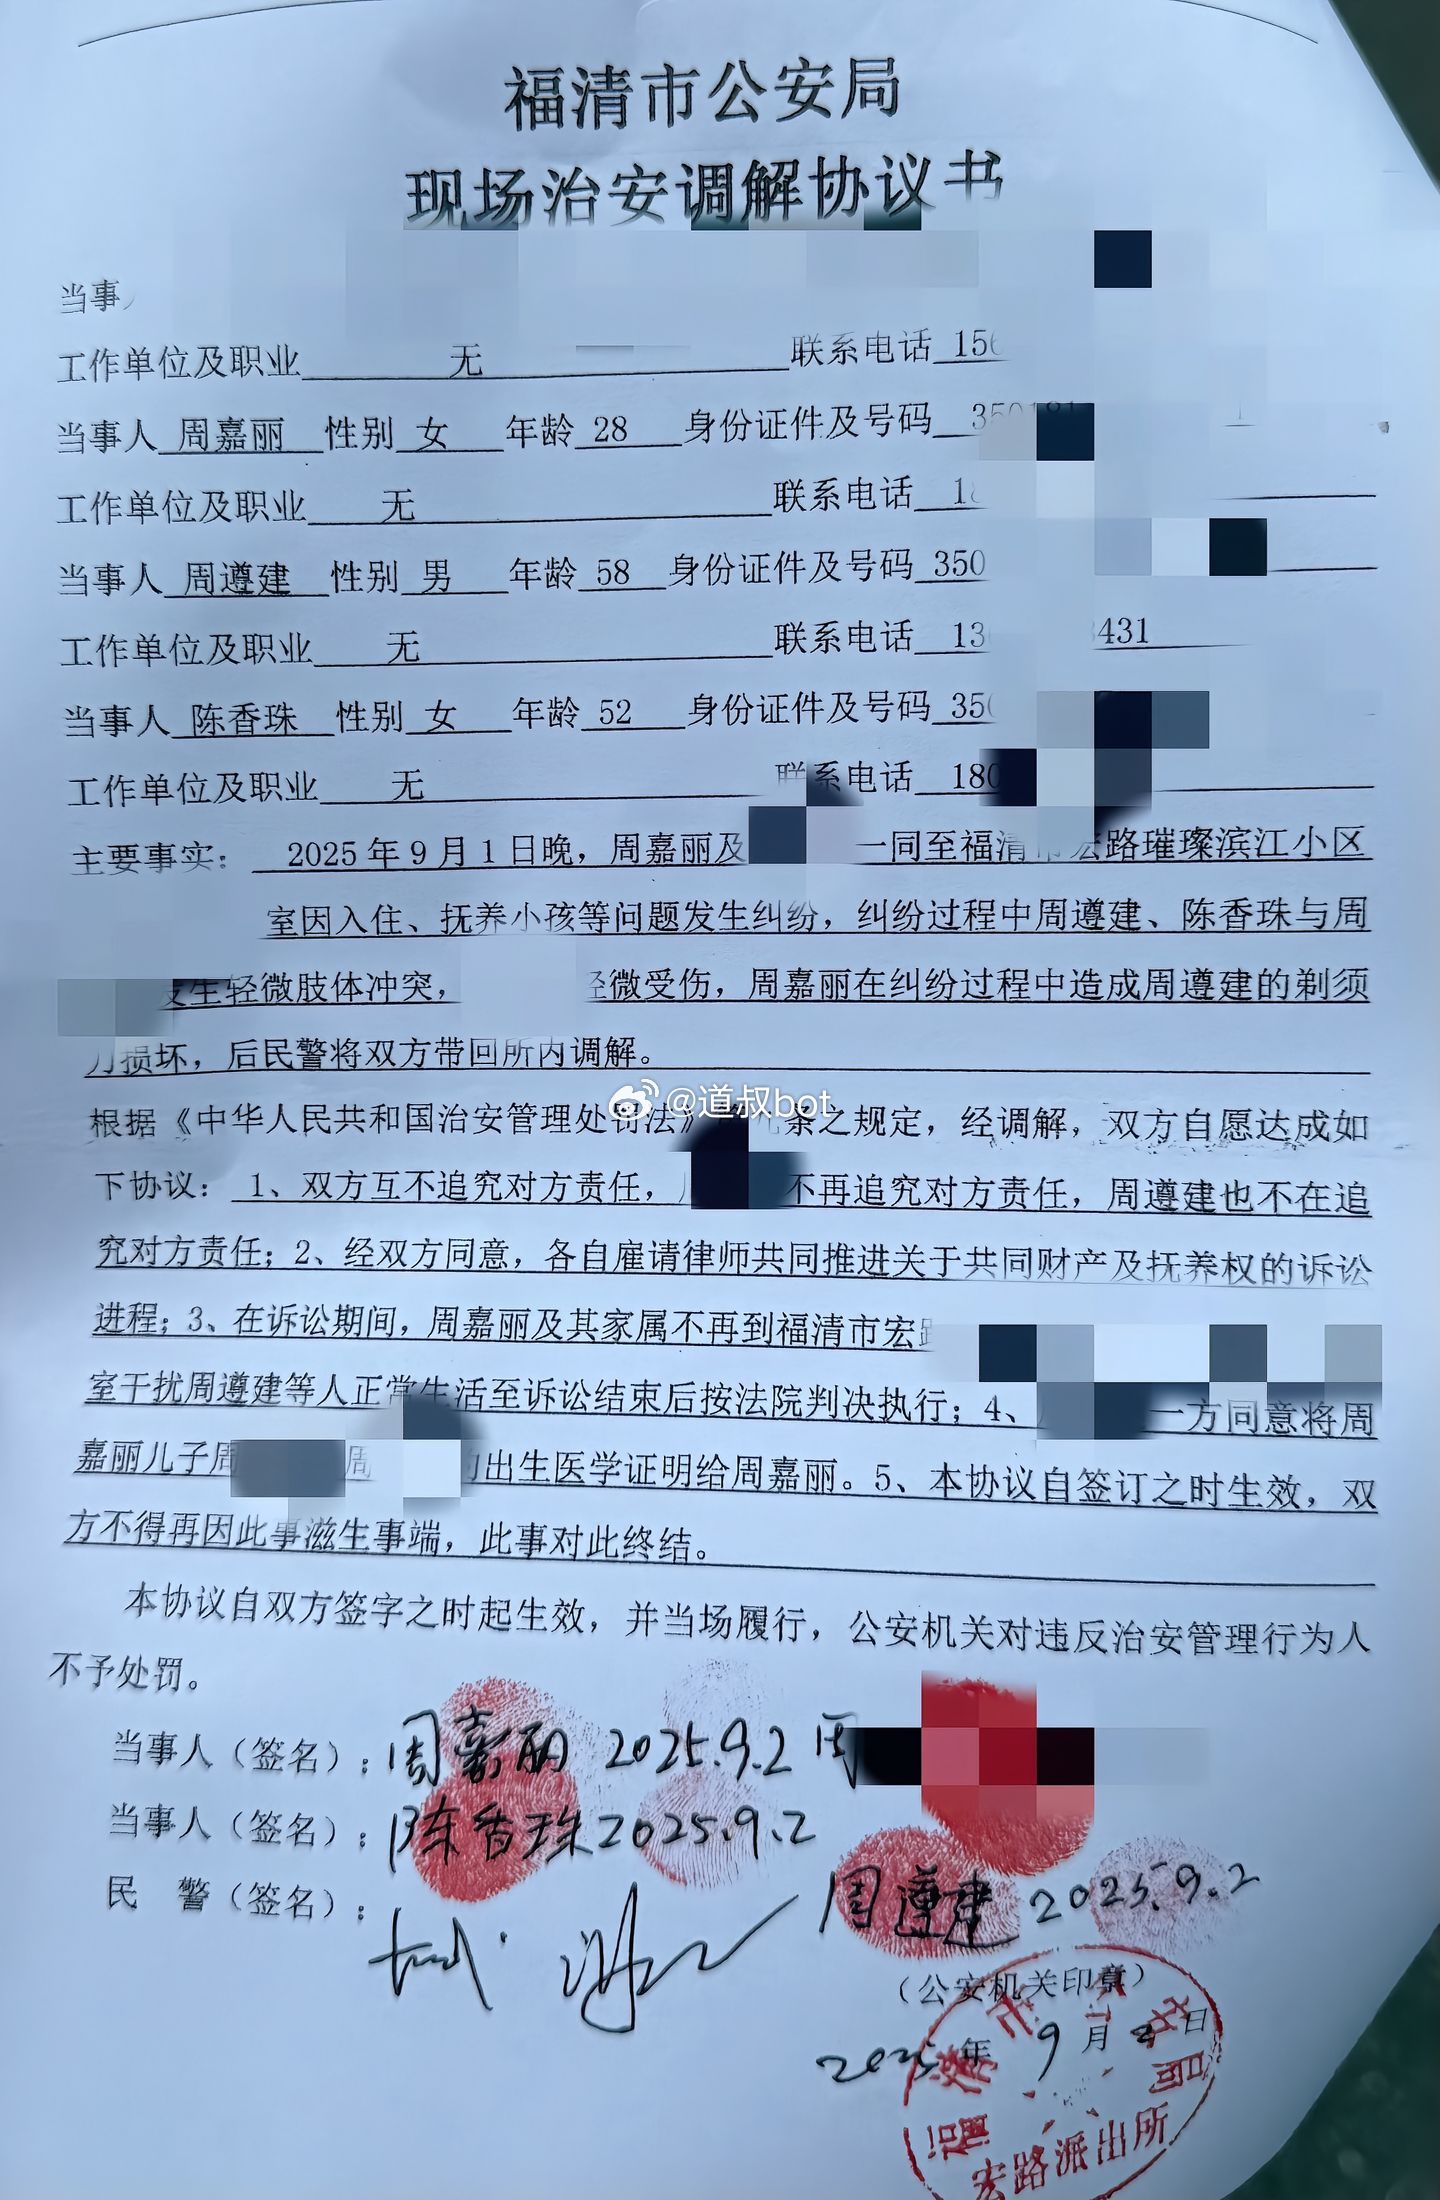 福清市公安局
现场治安调解协议书
当事
工作单位及职业 无 联系电话 15
当事人 周嘉丽 性别 女 年龄 28 身份证件及号码 350181
工作单位及职业 无 联系电话 1
当事人 周遵建 性别 男 年龄 58 身份证件及号码 350
工作单位及职业 无 联系电话 13 431
当事人 陈香珠 性别 女 年龄 52 身份证件及号码 350
工作单位及职业 无 联系电话 180
主要事实: 2025年9月1日晚，周嘉丽及 一同至福清市宏路璀璨滨江小区
室因入住、抚养小孩等问题发生纠纷，纠纷过程中周遵建、陈香珠与周
发生轻微肢体冲突， 轻微受伤，周嘉丽在纠纷过程中造成周遵建的剃须
刀损坏，后民警将双方带回所内调解。
@道叔bot
根据《中华人民共和国治安管理处罚法》 九条之规定，经调解，双方自愿达成如
下协议: 1、双方互不追究对方责任， 不再追究对方责任，周遵建也不在追
究对方责任；2、经双方同意，各自雇请律师共同推进关于共同财产及抚养权的诉讼
进程；3、在诉讼期间，周嘉丽及其家属不再到福清市宏
室干扰周遵建等人正常生活至诉讼结束后按法院判决执行；4、 一方同意将周
嘉丽儿子周 周 的出生医学证明给周嘉丽。5、本协议自签订之时生效，双
方不得再因此事滋生事端，此事对此终结。
本协议自双方签字之时起生效，并当场履行，公安机关对违反治安管理行为人
不予处罚。
当事人（签名）: 周嘉丽 2025.9.2 周
当事人（签名）: 陈香珠 2025.9.2
民 警（签名）:
周遵建 2025.9.2
（公安机关印章）
2025年9月2日
福清市公安局
宏路派出所